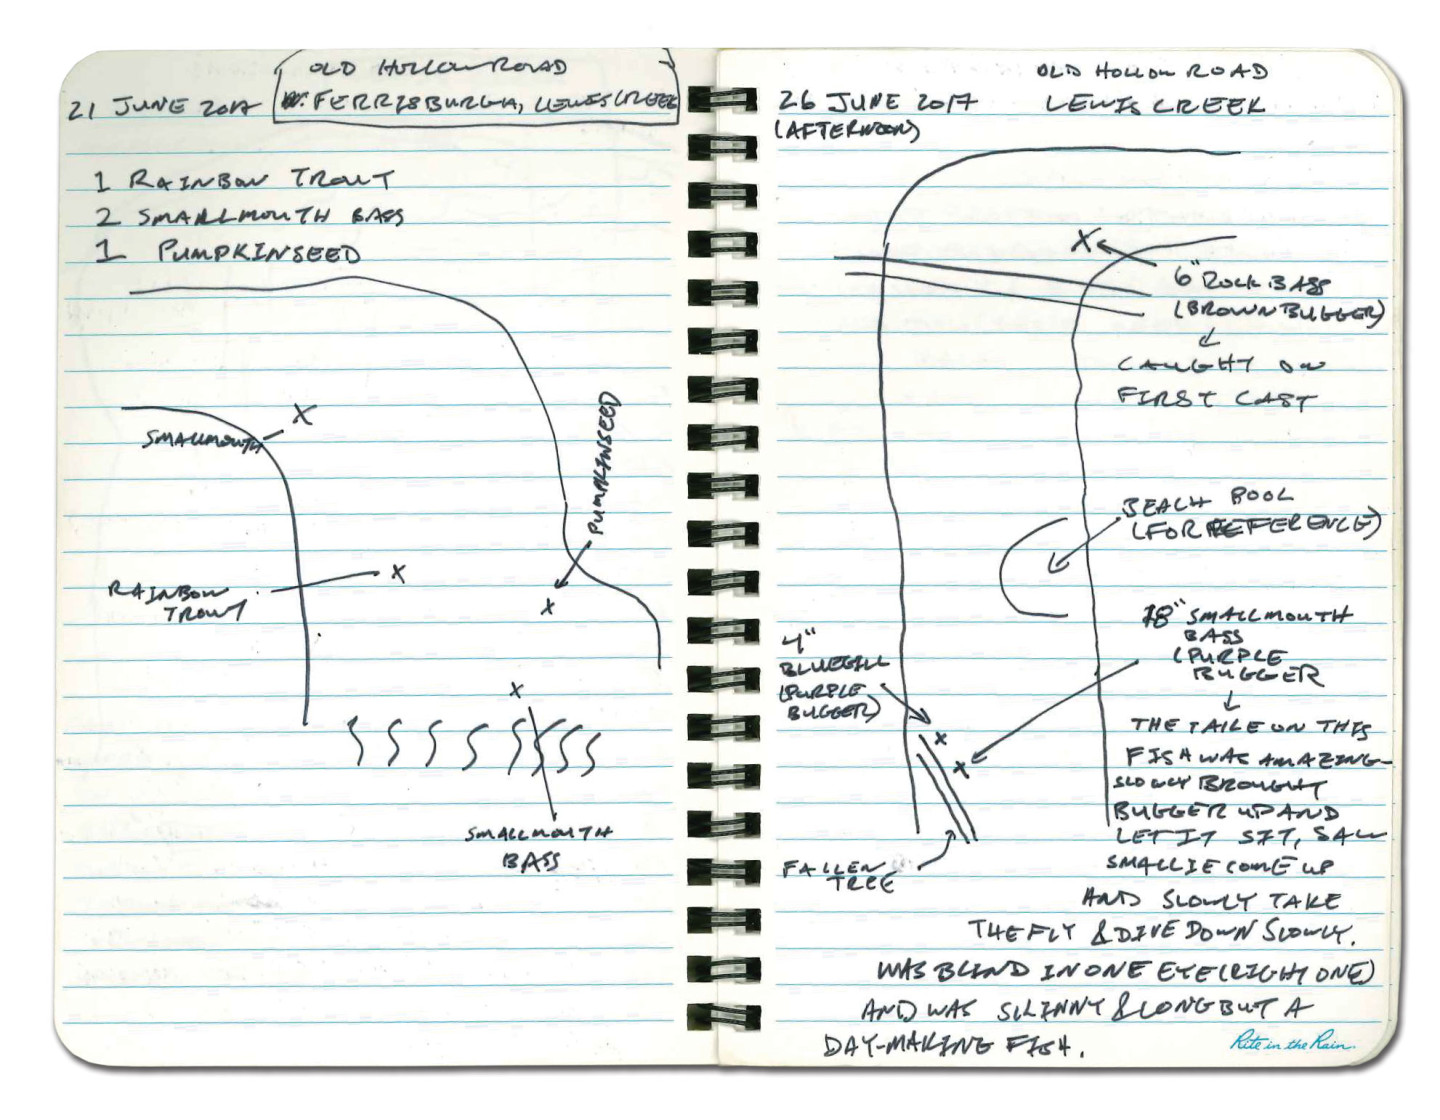 OLD HOLLOW ROAD
21 JUNE 2017
N. FERRISBURGH, LEWIS CREEK
1 RAINBOW TROUT
2 SMALLMOUTH BASS
1 PUMPKINSEED
SMALLMOUTH X
PUMPKINSEED
RAINBOW
TROUT
X
X
X
SMALLMOUTH
BASS
26 JUNE 2017
(AFTERNOON)
OLD HOLLOW ROAD
LEWIS CREEK
X
6" ROCK BASS
(BROWN BUGGER)
CAUGHT ON
FIRST CAST
BEACH POOL
(FOR REFERENCE)
4"
BLUEGILL
(PURPLE
BUGGER)
X
X
18" SMALLMOUTH
BASS
(PURPLE
BUGGER
FALLEN
TREE
THE TAKE ON THIS
FISH WAS AMAZING-
SLOWLY BROUGHT
BUGGER UP AND
LET IT SIT, SAW
SMALLIE COME UP
AND SLOWLY TAKE
THE FLY & DIVE DOWN SLOWLY.
WAS BLIND IN ONE EYE (RIGHT ONE)
AND WAS SKINNY & LONG BUT A
DAY-MAKING FISH.
Rite in the Rain.